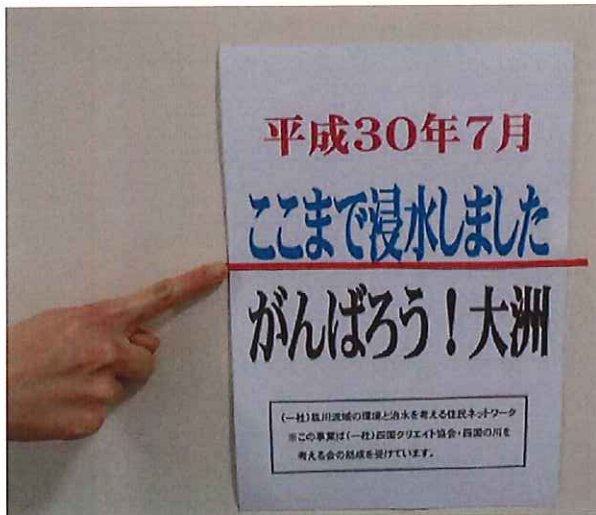 平成30年7月
ここまで浸水しました
がんばろう！大洲
(一社)肱川流域の環境と治水を考える住民ネットワーク
※この事業は(一社)四国クリエイト協会・四国の川を
考える会の助成を受けています。